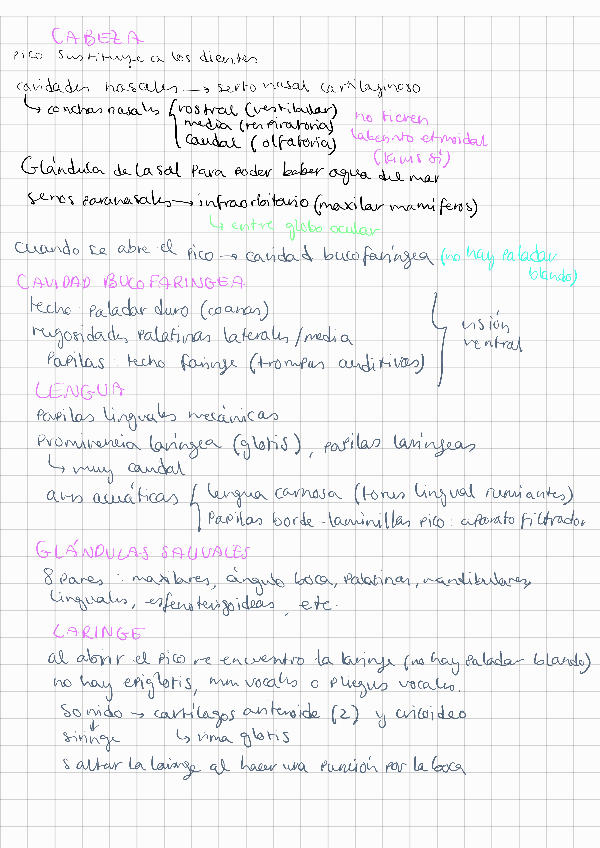 CABEZA
pico sustituye a los dientes
cavidades nasales → septo nasal cartilaginoso
↳ conchas nasales { rostral (vestibular)
media (respiratoria)
caudal (olfatoria)
no tienen
laberinto etmoidal
(kiwis sí)
Glándula de la sal para poder beber agua del mar
senos paranasales → infraorbitario (maxilar mamíferos)
↳ entre globo ocular
cuando se abre el pico → cavidad bucofaríngea (no hay paladar
blando)
CAVIDAD BUCOFARINGEA
techo paladar duro (coanas)
rugosidades palatinas laterales/media
Papilas techo faringe (trompas auditivas)
visión
ventral
LENGUA
Papilas linguales mecánicas
Prominencia laríngea (glotis), papilas laríngeas
↳ muy caudal
aves acuáticas { lengua carnosa (torus lingual rumiantes)
Papilas borde-laminillas pico: aparato filtrador
GLÁNDULAS SALIVALES
8 pares: maxilares, ángulo boca, palatinas, mandibulares,
linguales, esfenoterigoideas, etc.
LARINGE
al abrir el pico me encuentro la laringe (no hay paladar blando)
no hay epiglotis, mm vocales o pliegues vocales.
Sonido → cartílagos aritenoide (2) y cricoideo
↓
siringe ↳ rima glotis
saltar la laringe al hacer una punción por la boca